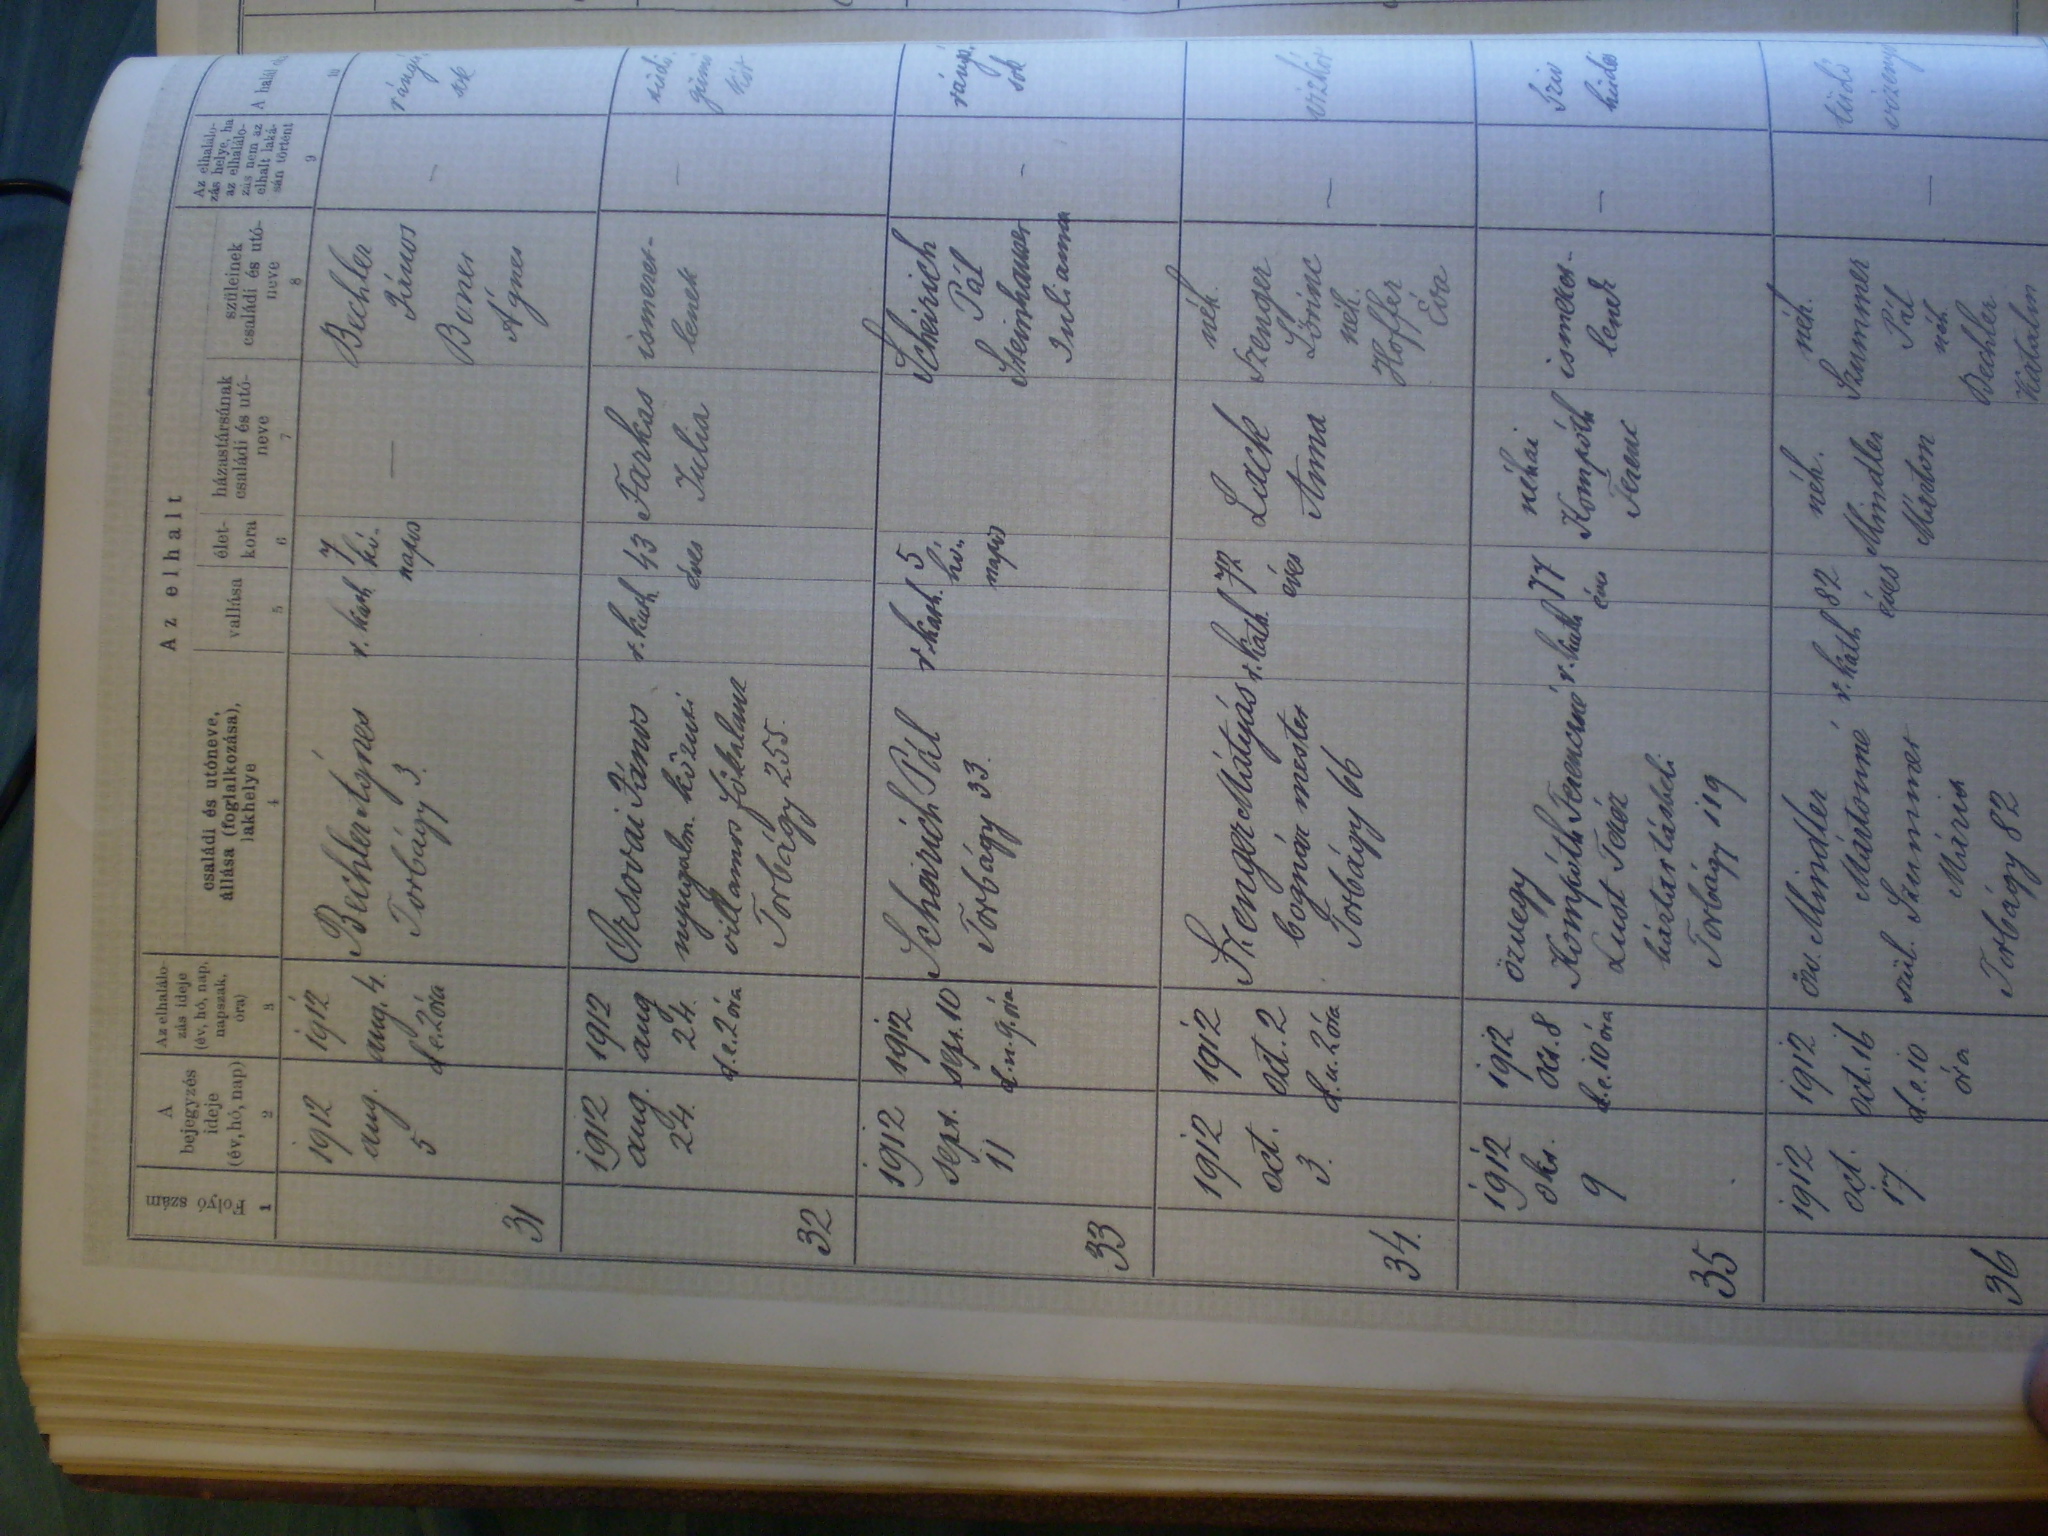 Az elhalt
Folyó
szám
A
bejegyzés
ideje
(év, hó, nap)
Az elhalálo-
zás ideje
(év, hó, nap,
napszak,
óra)
családi és utóneve,
állása (foglalkozása),
lakhelye
vallása
élet-
kora
házastársának
családi és utó-
neve
szüleinek
családi és utó-
neve
Az elhalálo-
zás helye, ha
az elhalálo-
zás nem az
elhalt laká-
sán történt
A halál
1
2
3
4
5
6
7
8
9
10
31
1912
aug.
5
1912
aug. 4.
d.e. 2 óra
Bechler Ágnes
Torbágy 3.
r. kath
7
hó.
napos
—
Bechler
János
Boner
Ágnes
—
rángó
32
1912
aug.
24.
1912
aug
24.
d.e. 2 óra
Orsovai János
nyugalm. közuti
villamos főkalauz
Torbágy 255.
r. kath
43
éves
Farkas
Julia
ismeret-
lenek
—
33
1912
sept.
11
1912
sept. 10
d.u. 9. óra
Scheirich Pál
Torbágy 33.
r. kath.
5
hó-
napos
Scheirich
Pál
Steinhauser
Julianna
—
rángó
sok
34.
1912
oct.
3.
1912
oct. 2
d.u. 2 óra
Szenger Mátyás
bognár mester
Torbágy 66
r. kath.
72
éves
Lack
Anna
néh.
Szenger
Lőrinc
néh.
Hoffer
Éva
—
vizkór
35
1912
okt.
9
1912
oct. 8
d.e. 10 óra
özvegy
Kompóth Ferencné
Lust Teréz
háztartásbeli
Torbágy 119
r. kath
77
éves
néhai
Kompóth
Ferenc
ismeret-
lenek
—
Sziv
hüdés
36
1912
oct.
17
1912
oct. 16
d.e. 10
óra
özv. Mindler
Mártonné
szül. Szummer
Mária
Torbágy 82
r. kath
82
éves
néh.
Mindler
Márton
néh.
Szummer
Pál
néh.
Bechler
Katalin
—
tüdő
vizenyő